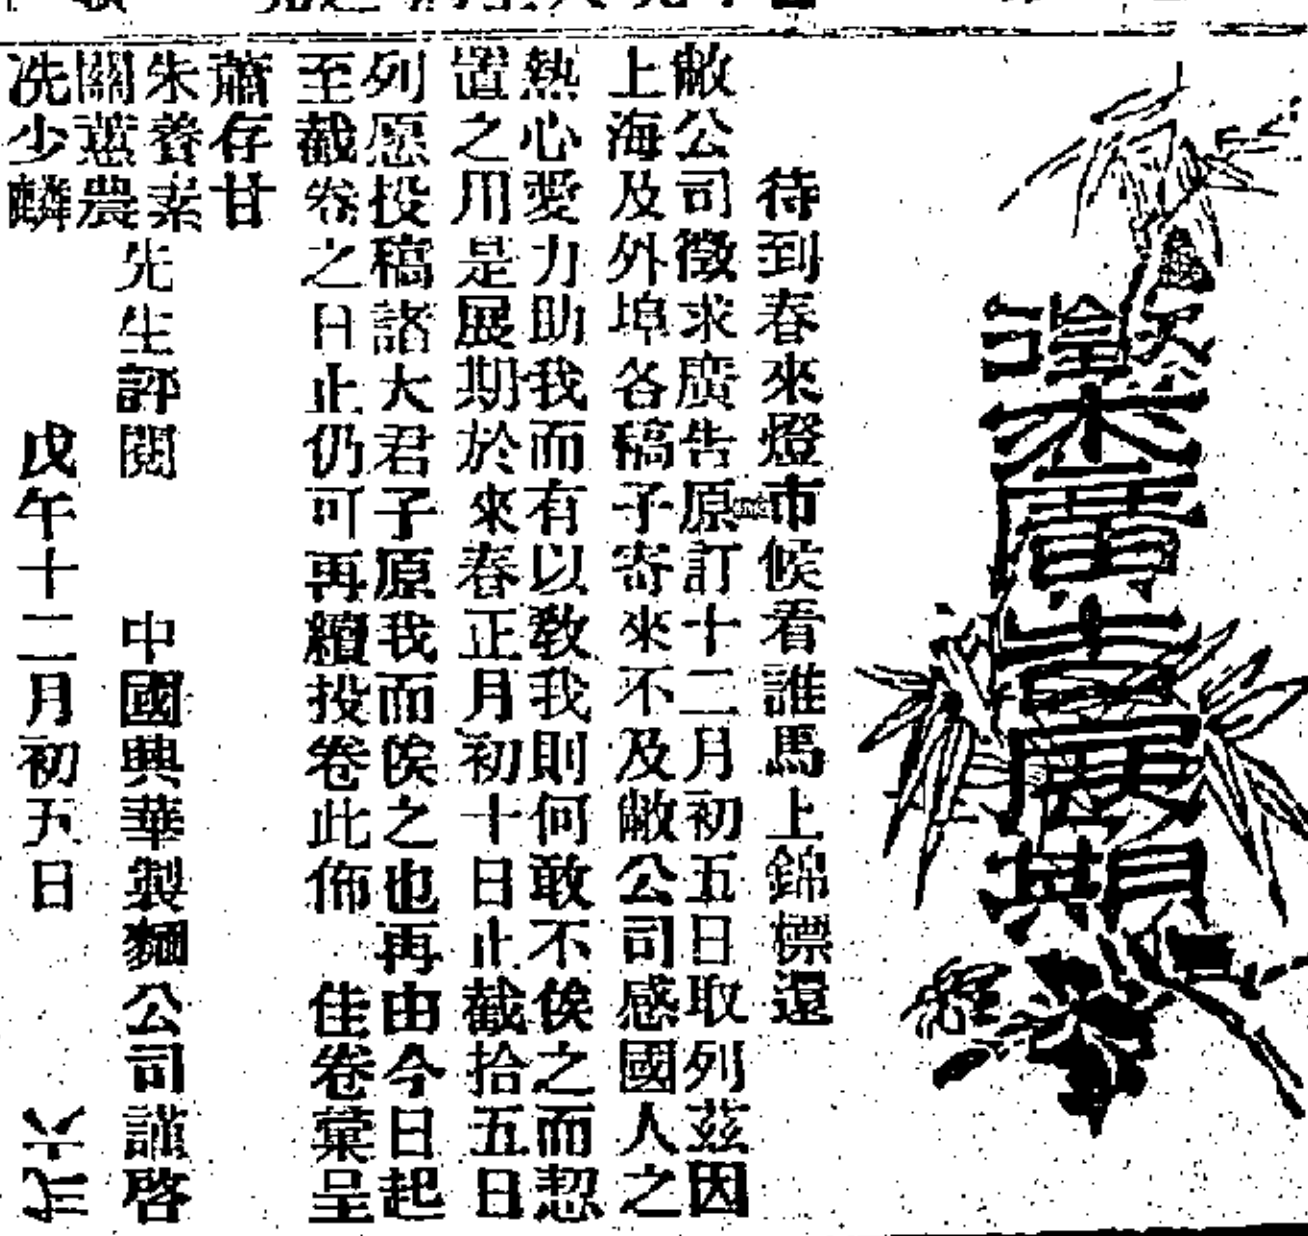 廣告展期
待到春來燈市候看誰馬上錦標還
敝公司徵求廣告原訂十二月初五日取列茲因
上海及外埠各稿子寄來不及敝公司感國人之
熱心愛力助我而有以敎我則何敢不俟之而恝
置之用是展期於來春正月初十日止截拾五日
列愿投稿諸大君子原我而俟之也再由今日起
至截卷之日止仍可再續投卷此佈 佳卷彙呈
蕭存甘
朱養素
關蕙農
冼少麟
先生評閱
中國興華製麵公司謹啓
戊午十二月初五日